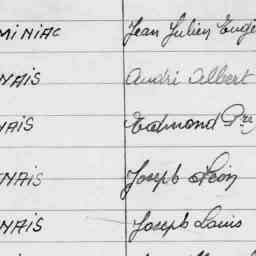 MINIAC Jean Julien Eugè
NAIS André Albert
NAIS Edmond Prr
NAIS Joseph Léon
NAIS Joseph Louis